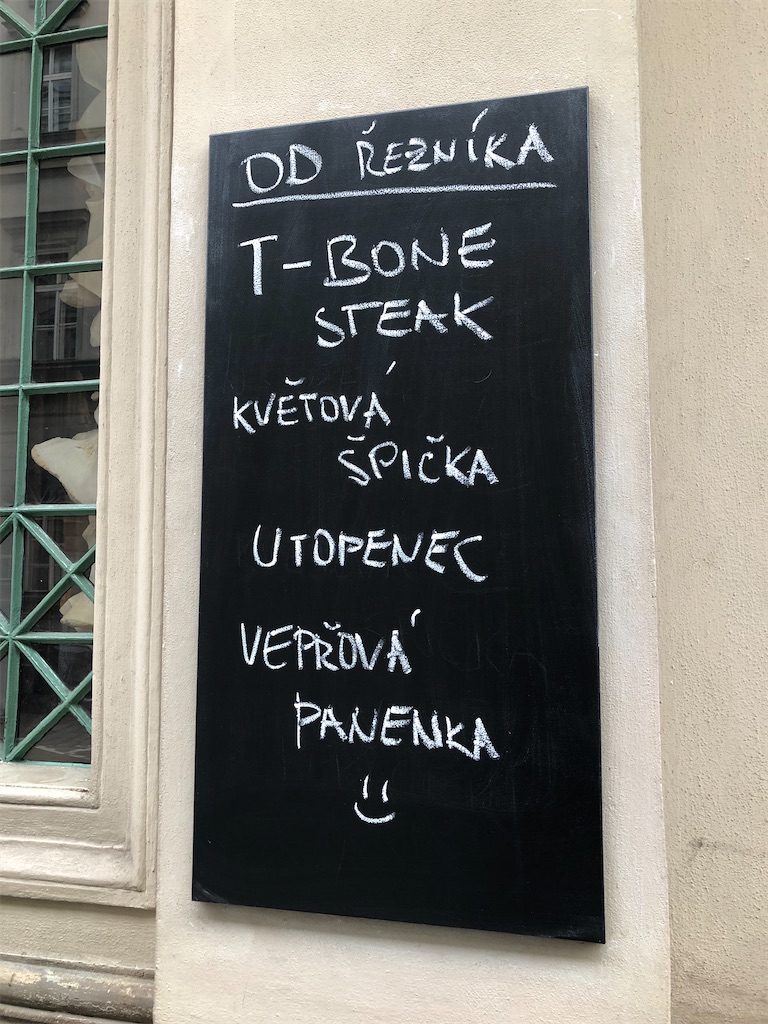 OD ŘEZNÍKA
T-BONE
STEAK
KVĚTOVÁ
ŠPIČKA
UTOPENEC
VEPŘOVÁ
PANENKA